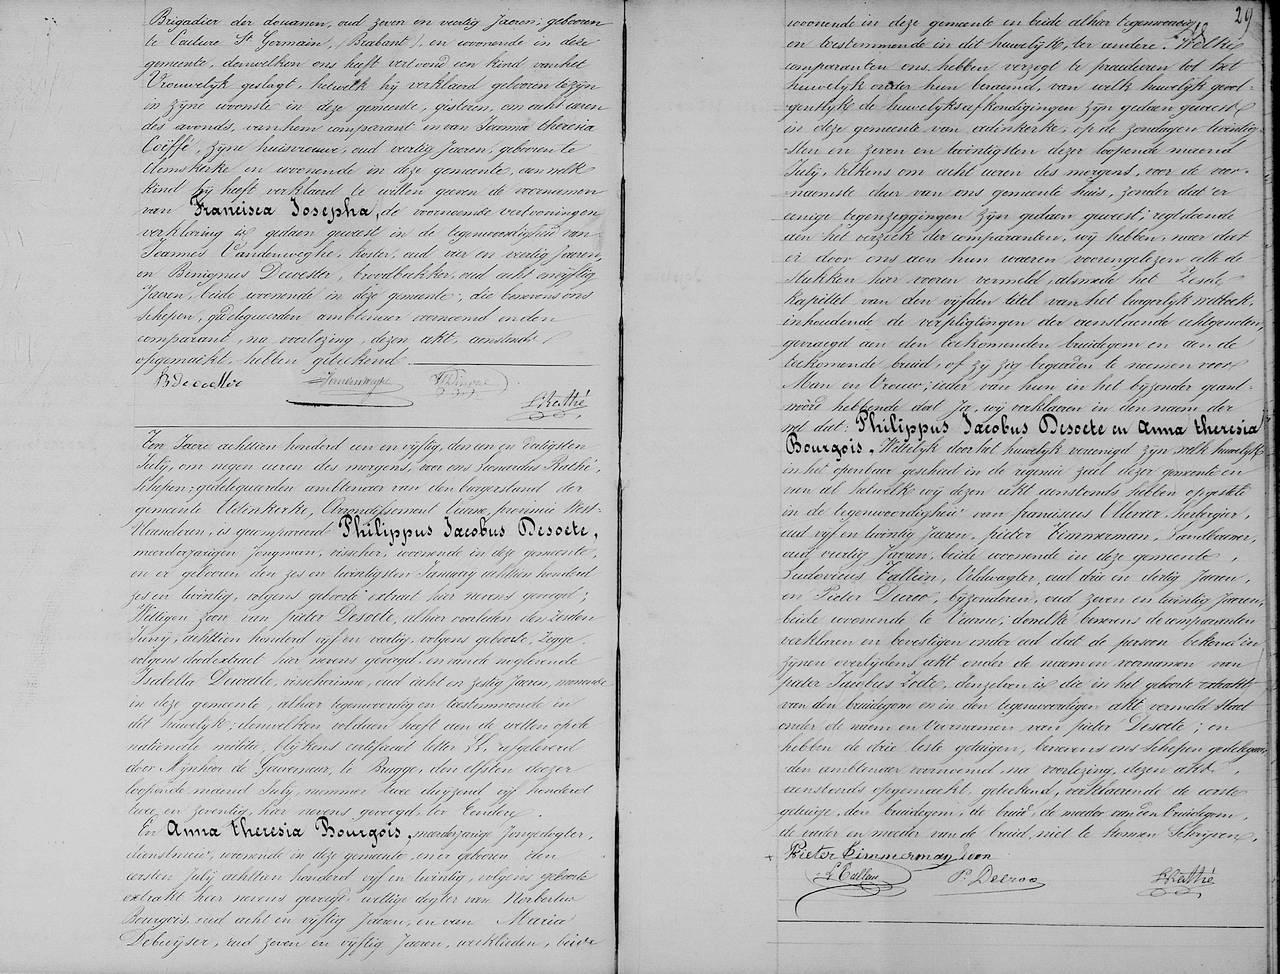 Brigadier der douanen, oud zeven en veertig Jaeren, geboren
te Couture St Germain, (Brabant), en woonende in deze
gemeente, denwelken ons heeft vertoond een kind van het
Vrouwelyk geslagt, hetwelk hy verklaerd geboren te zyn
in zyne wooneste in deze gemeente, gisteren, om acht uren
des avonds, van hem comparant en van Joanna theresia
Coiffé, zyne huisvrouwe, oud veertig Jaeren, geboren te
en woonende in deze gemeente, aen welk
kind hy heeft verklaerd te willen geven de voornamen
van Francisca Josepha, de voornoemde vertooning en
verklaring is gedaen geweest in de tegenwoordigheid van
Joannes Vandenweghe, koster, oud vier en veertig Jaeren,
en Benignus Dewester, broodbakker, oud acht en vyftig
Jaeren, beide woonende in deze gemeente, die benevens ons
schepen, gedelegueerden ambtenaer voornoemd en den
comparant, na voorlezing, dezen akt, aenstonds
opgemaekt, hebben geteekend
L. Rathé
Ten Jaere achttien honderd een en vyftig, den een en dertigsten
July, om negen uren des morgens, voor ons Leonardus Rathé,
schepen, gedelegueerden ambtenaer van den burgerstand der
gemeente Adinkerke, Arrondissement Veurne, provincie West-
Vlaenderen, is gecompareerd Philippus Jacobus Desoete,
meerderjarigen Jongman, visscher, woonende in deze gemeente,
en er geboren den zes en twintigsten January achttien honderd
zes en twintig, volgens geboorte extrait hier nevens gevoegd;
Wettigen zoon van pieter Desoete, alhier overleden den zesden
Juny, achttien honderd vyf en veertig, volgens geboorte, zegge
volgens doodextract hier nevens gevoegd, en van de nog levende
Isabella Dewaele, visscherinne, oud acht en zestig Jaeren, woonende
in deze gemeente, alhier tegenwoordig en toestemmende in
dit huwelyk; denwelken voldaen heeft aen de wetten op de
nationale militie, blykens certificaet letter L, afgeleverd
door Mynheer de Gouverneur, te Brugge, den elfsten dezer
loopende maend July, nommer twee duyzend vyf honderd
twee en zeventig, hier nevens gevoegd, ter Eendere.
En Anna theresia Bourgois, meerderjarige Jongedogter,
dienstmeid, woonende in deze gemeente, en er geboren den
eersten July achttien honderd vyf en twintig, volgens geboorte
extrakt hier nevens gevoegd, wettige dogter van Norbertus
Bourgois, oud acht en vyftig Jaeren, en van Maria
Debuyser, oud zeven en vyftig Jaeren, werklieden, beide
29
woonende in deze gemeente en beide alhier tegenwoordig
en toestemmende in dit huwelyk, ter andere. Welke
comparanten ons hebben verzogt te procederen tot het
huwelyk onder hun beraemd, van welk huwelyk gevol-
gentlyk de huwelyksafkondigingen zyn gedaen geweest
in deze gemeente van adinkerke, op de zondagen twintig-
sten en zeven en twintigsten dezer loopende maend
July, telkens om acht uren des morgens, voor de voor-
naemste deur van ons gemeente huis, zonder dat er
eenige tegenzeggingen zyn gedaen geweest; regtdoende
aen het verzoek der comparanten, wy hebben, naer dat
er door ons aen hun waeren voorengelezen alle de
stukken hier vooren vermeld, alsmede het Zesde
kapittel van den vyfden titel van het burgerlyk wetboek,
inhoudende de verpligtingen der aenstaende echtgenoten,
gevraegd aen den toekomenden bruidegom en aen de
toekomende bruid, of zy zig begeeren te neemen voor
Man en Vrouw; ieder van hun in het byzonder geant-
woord hebbende dat Ja, wy verklaeren in den naem der
wet dat: Philippus Jacobus Desoete en Anna theresia
Bourgois, Wettelyk door het huwelyk vereenigd zyn, welk huwelyk
in het openbaer geschied in de regencie zael dezer gemeente en
van al hetwelk wy dezen akt aenstonds hebben opgesteld
in de tegenwoordigheid van franciscus Ollevier, herbergier,
oud vyf en twintig Jaeren, pieter Timmerman, Landbouwer,
oud veertig Jaeren, beide woonende in deze gemeente,
Ludovicus Tallein, Veldwagter, oud drie en dertig Jaeren,
en Pieter Decroo, byzonderen, oud zeven en twintig Jaeren,
beide woonende te Veurne; dewelke benevens de comparanten
verklaren en bevestigen onder eed dat de persoon bekend in
zynen overlydens akt onder de naem en voornamen van
pieter Jacobus Zoete, denzelven is die in het geboorte extrakt
van den bruidegom en in den tegenwoordigen akt vermeld staet
onder de naem en Voornamen van pieter Desoete; en
hebben de drie leste getuigen, benevens ons schepen gedelegueer-
den ambtenaer voornoemd, na voorlezing, dezen akt,
aenstonds opgemaekt, geteekend, verklaerende de eerste
getuige, den bruidegom, de bruid, de moeder van den bruidegom,
de vader en moeder van de bruid, niet te konnen Schryven.
Pieter Timmerman zoon
L. Tallein P. Decroo L. Rathé